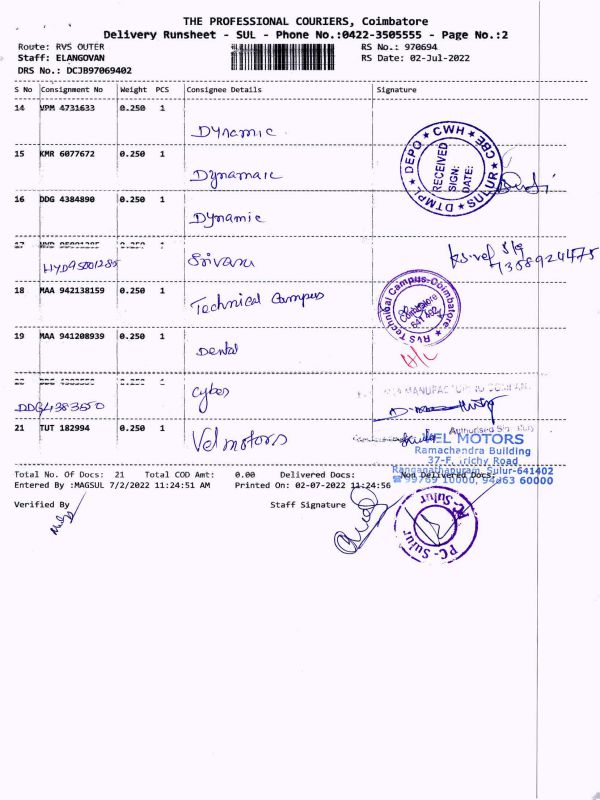 THE PROFESSIONAL COURIERS, Coimbatore
Delivery Runsheet - SUL - Phone No.:0422-3505555 - Page No.:2
Route: RVS OUTER RS No.: 970694
Staff: ELANGOVAN RS Date: 02-Jul-2022
DRS No.: DCJB97069402
S No Consignment No Weight PCS Consignee Details Signature
14 VPM 4731633 0.250 1
Dynamic
15 KMR 6077672 0.250 1
Dynamaic
16 DDG 4384890 0.250 1
Dynamic
DTMPL ★ DEPO ★ CWH ★ CBE ★ SULUR
RECEIVED
SIGN:
DATE:
17 HYD 95001285 0.250 1
HYD95001285 Srivaru
18 MAA 942138159 0.250 1
Technical Campus
RVS Technical Campus-Coimbatore
Coimbatore
641 402
19 MAA 941208939 0.250 1
Dental
0.250 1
DDG4383550 Cybes
MANUFACTURING COMPANY
21 TUT 182994 0.250 1
Vel motors
Authorised
VEL MOTORS
Ramachandra Building
37-F, Trichy Road
Ranganathapuram, Sulur-641402
☎ 99769 10000, 94863 60000
Total No. Of Docs: 21 Total COD Amt: 0.00 Delivered Docs: Non Delivered Docs:
Entered By :MAGSUL 7/2/2022 11:24:51 AM Printed On: 02-07-2022 11:24:56
Verified By Staff Signature
PC-Sulur
PC-Sulur